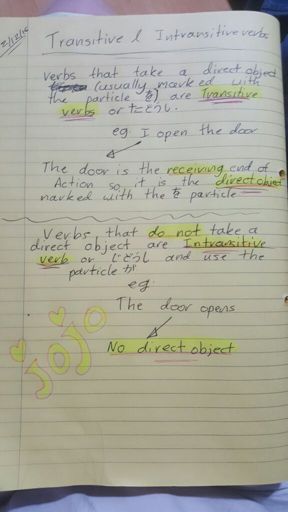 2/12/15
Transitive & Intransitive verbs
Verbs that take a direct object
(usually marked with
the particle を) are Transitive
verbs or たどうし.
eg I open the door
The door is the receiving end of
Action so it is the direct object
marked with the を particle
Verbs, that do not take a
direct object are Intransitive
verb or じどうし and use the
particle が
eg.
The door opens
No direct object
JoJo